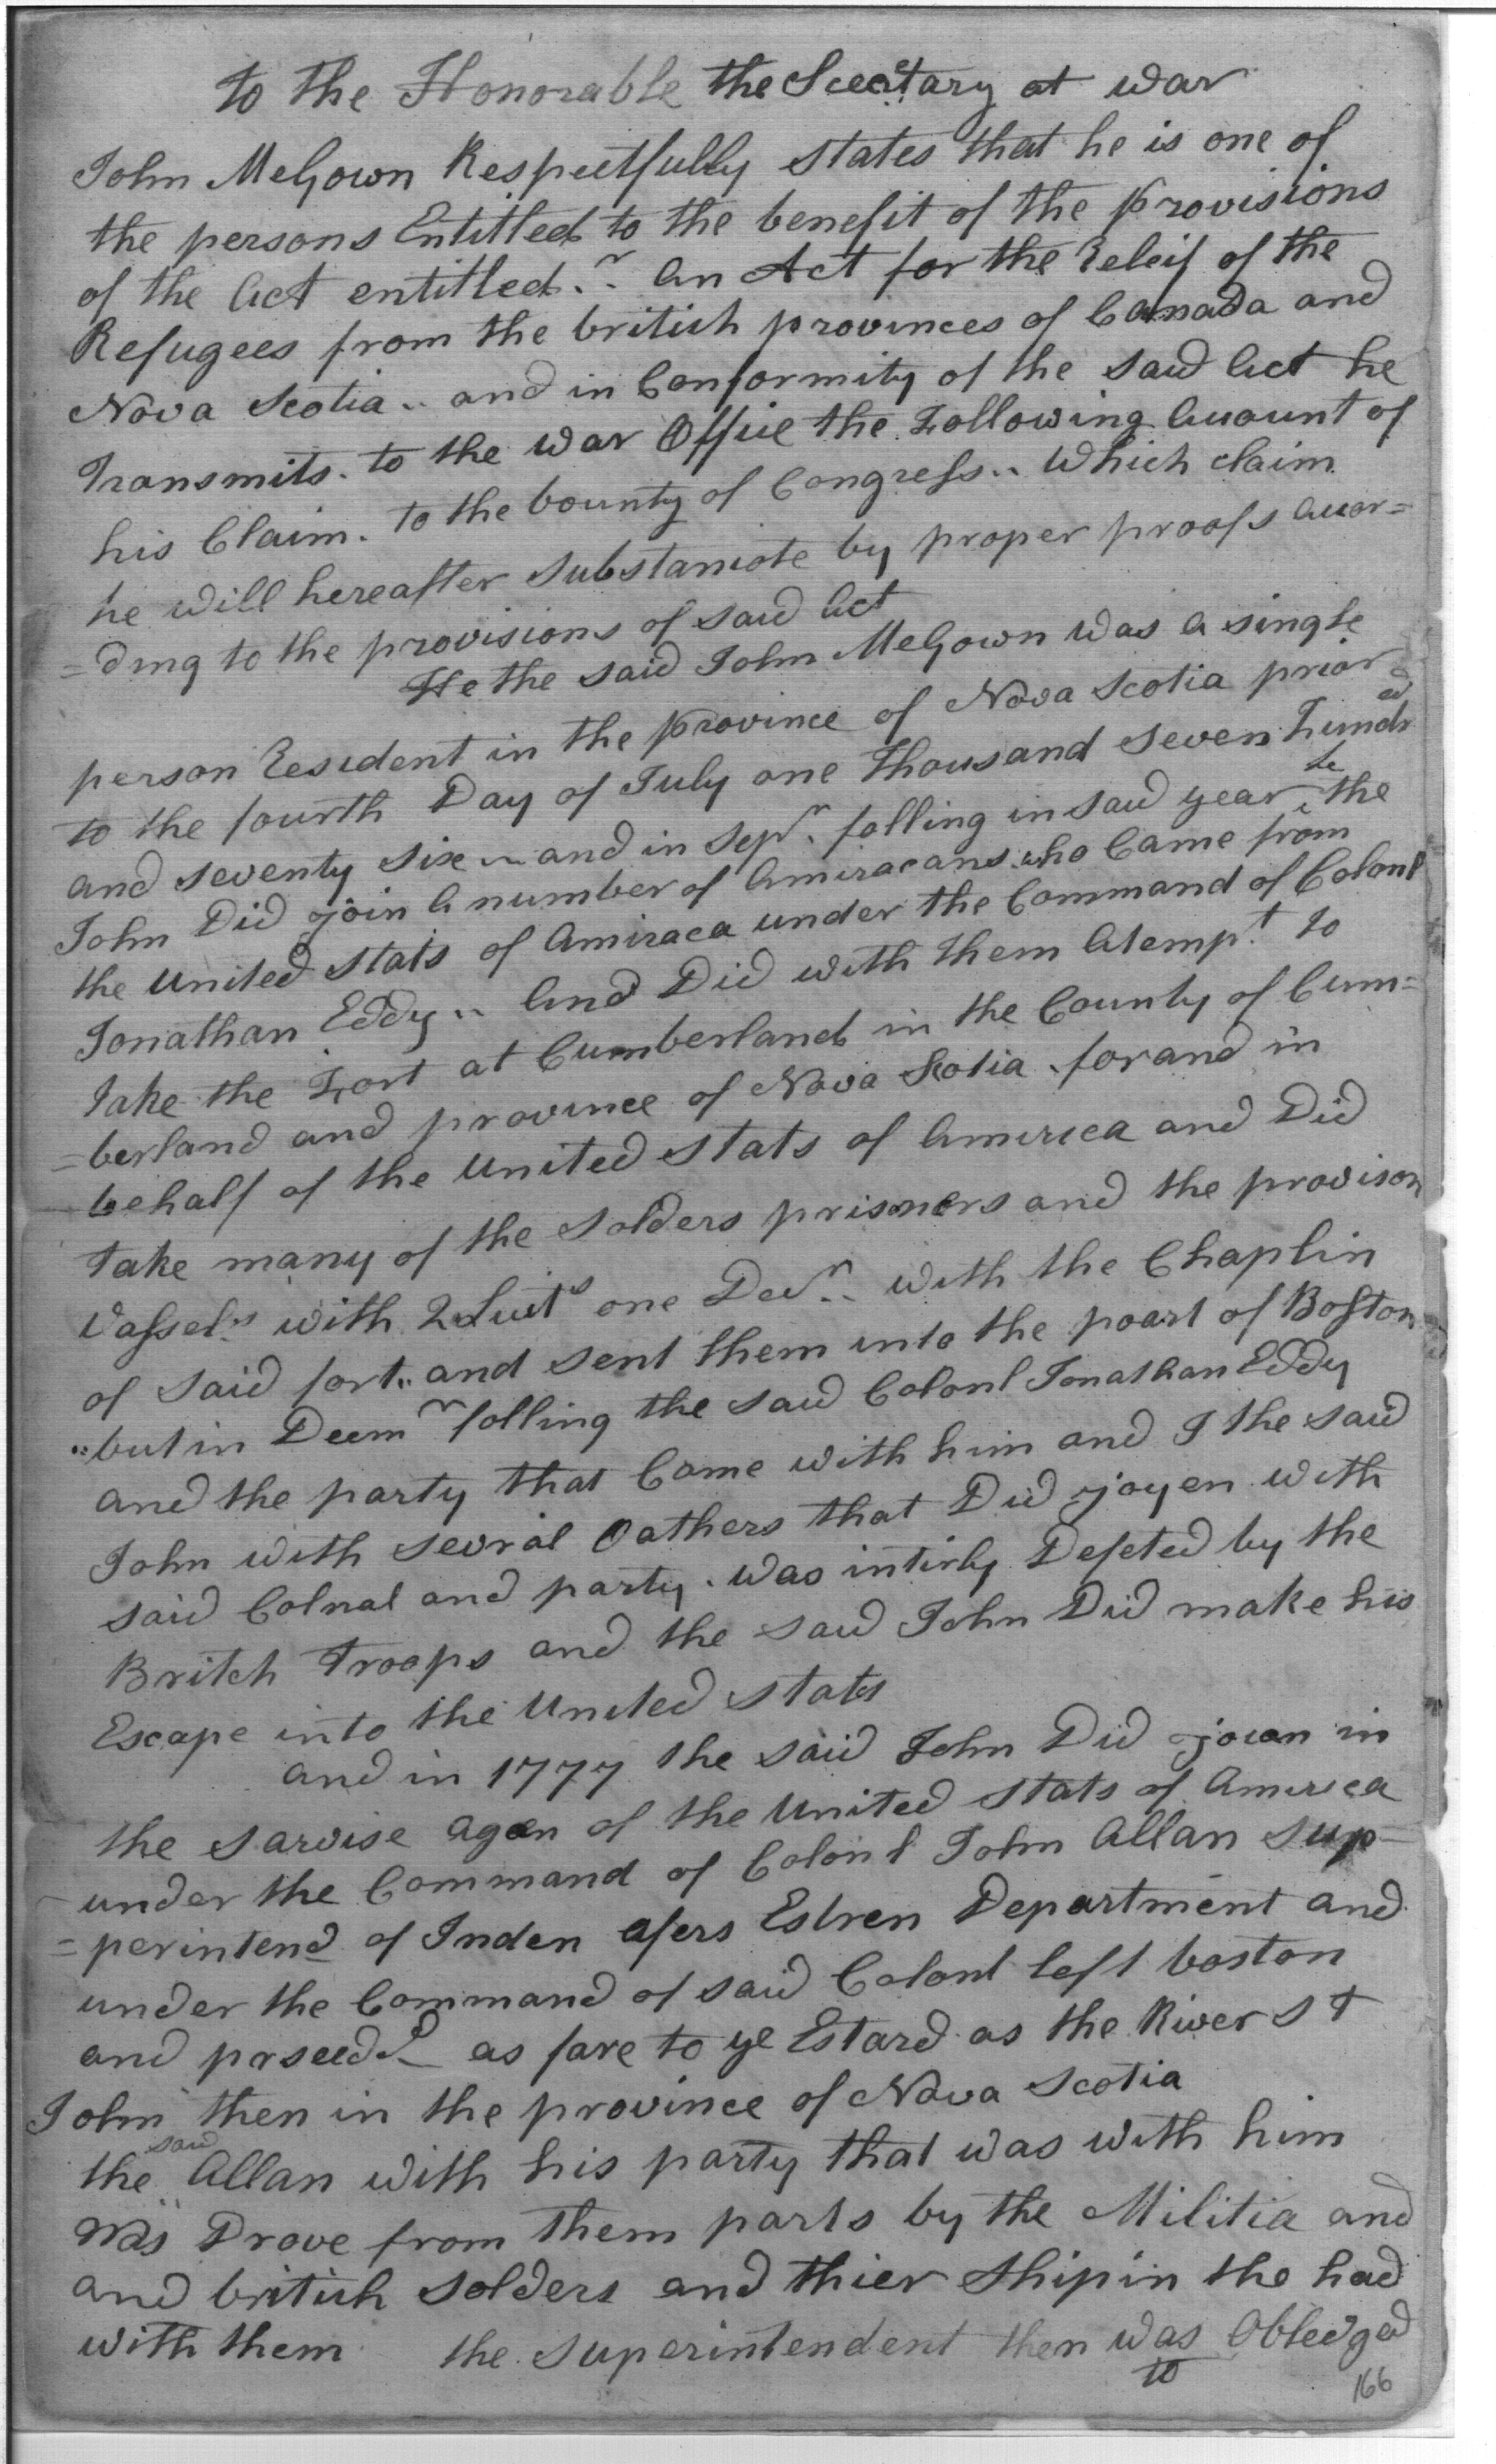 to the Honorable the Secretary at war
John McGown Respectfully states that he is one of
the persons Entitled to the benefit of the provisions
of the act entitled.. an Act for the Releif of the
Refugees from the british provinces of Canada and
Nova Scotia.. and in Conformity of the said act he
Transmits. to the war Office the Following account of
his Claim. to the bounty of Congress.. Which claim
he will hereafter substanciate by proper proofs accor=
=ding to the provisions of said act
He the said John McGown was a single
person Resident in the province of Nova Scotia prior
to the fourth Day of July one Thousand seven hundred
and seventy six ~ and in Sepr. folling in said year he the
John Did join a number of Amiracans who Came from
the united stats of Amiraca under the Command of Colonl
Jonathan Eddy.. And Did with them Atempt to
Take the Fort at Cumberland in the County of Cum=
=berland and province of Nova Scotia for and in
behalf of the united stats of America and Did
take many of the solders prisnors and the provison
Vassels with 2 Luits one Dor.. with the Chaplin
of said fort.. and sent them into the poart of Boston
.. but in Decmr folling the said Colonl Jonathan Eddy
and the party that Came with him and I the said
John with sevral oathers that Did joyen with
said Colnal and party. was intirly Defeted by the
Britch Troops and the said John Did make his
Escape into the United stats
and in 1777 the said John Did joian in
the sarvise agen of the United stats of America
under the Command of Colonl John Allan sup=
=perintend of Inden afers Estren Department and
under the Command of said Colonl left boston
and prseeded as fare to ye Estard as the River St
John then in the province of Nova Scotia
the said Allan with his party that was with him
was Drove from them parts by the Militia and
and british solders and thier Shipin the had
with them the superintendent then was obledged
to
166